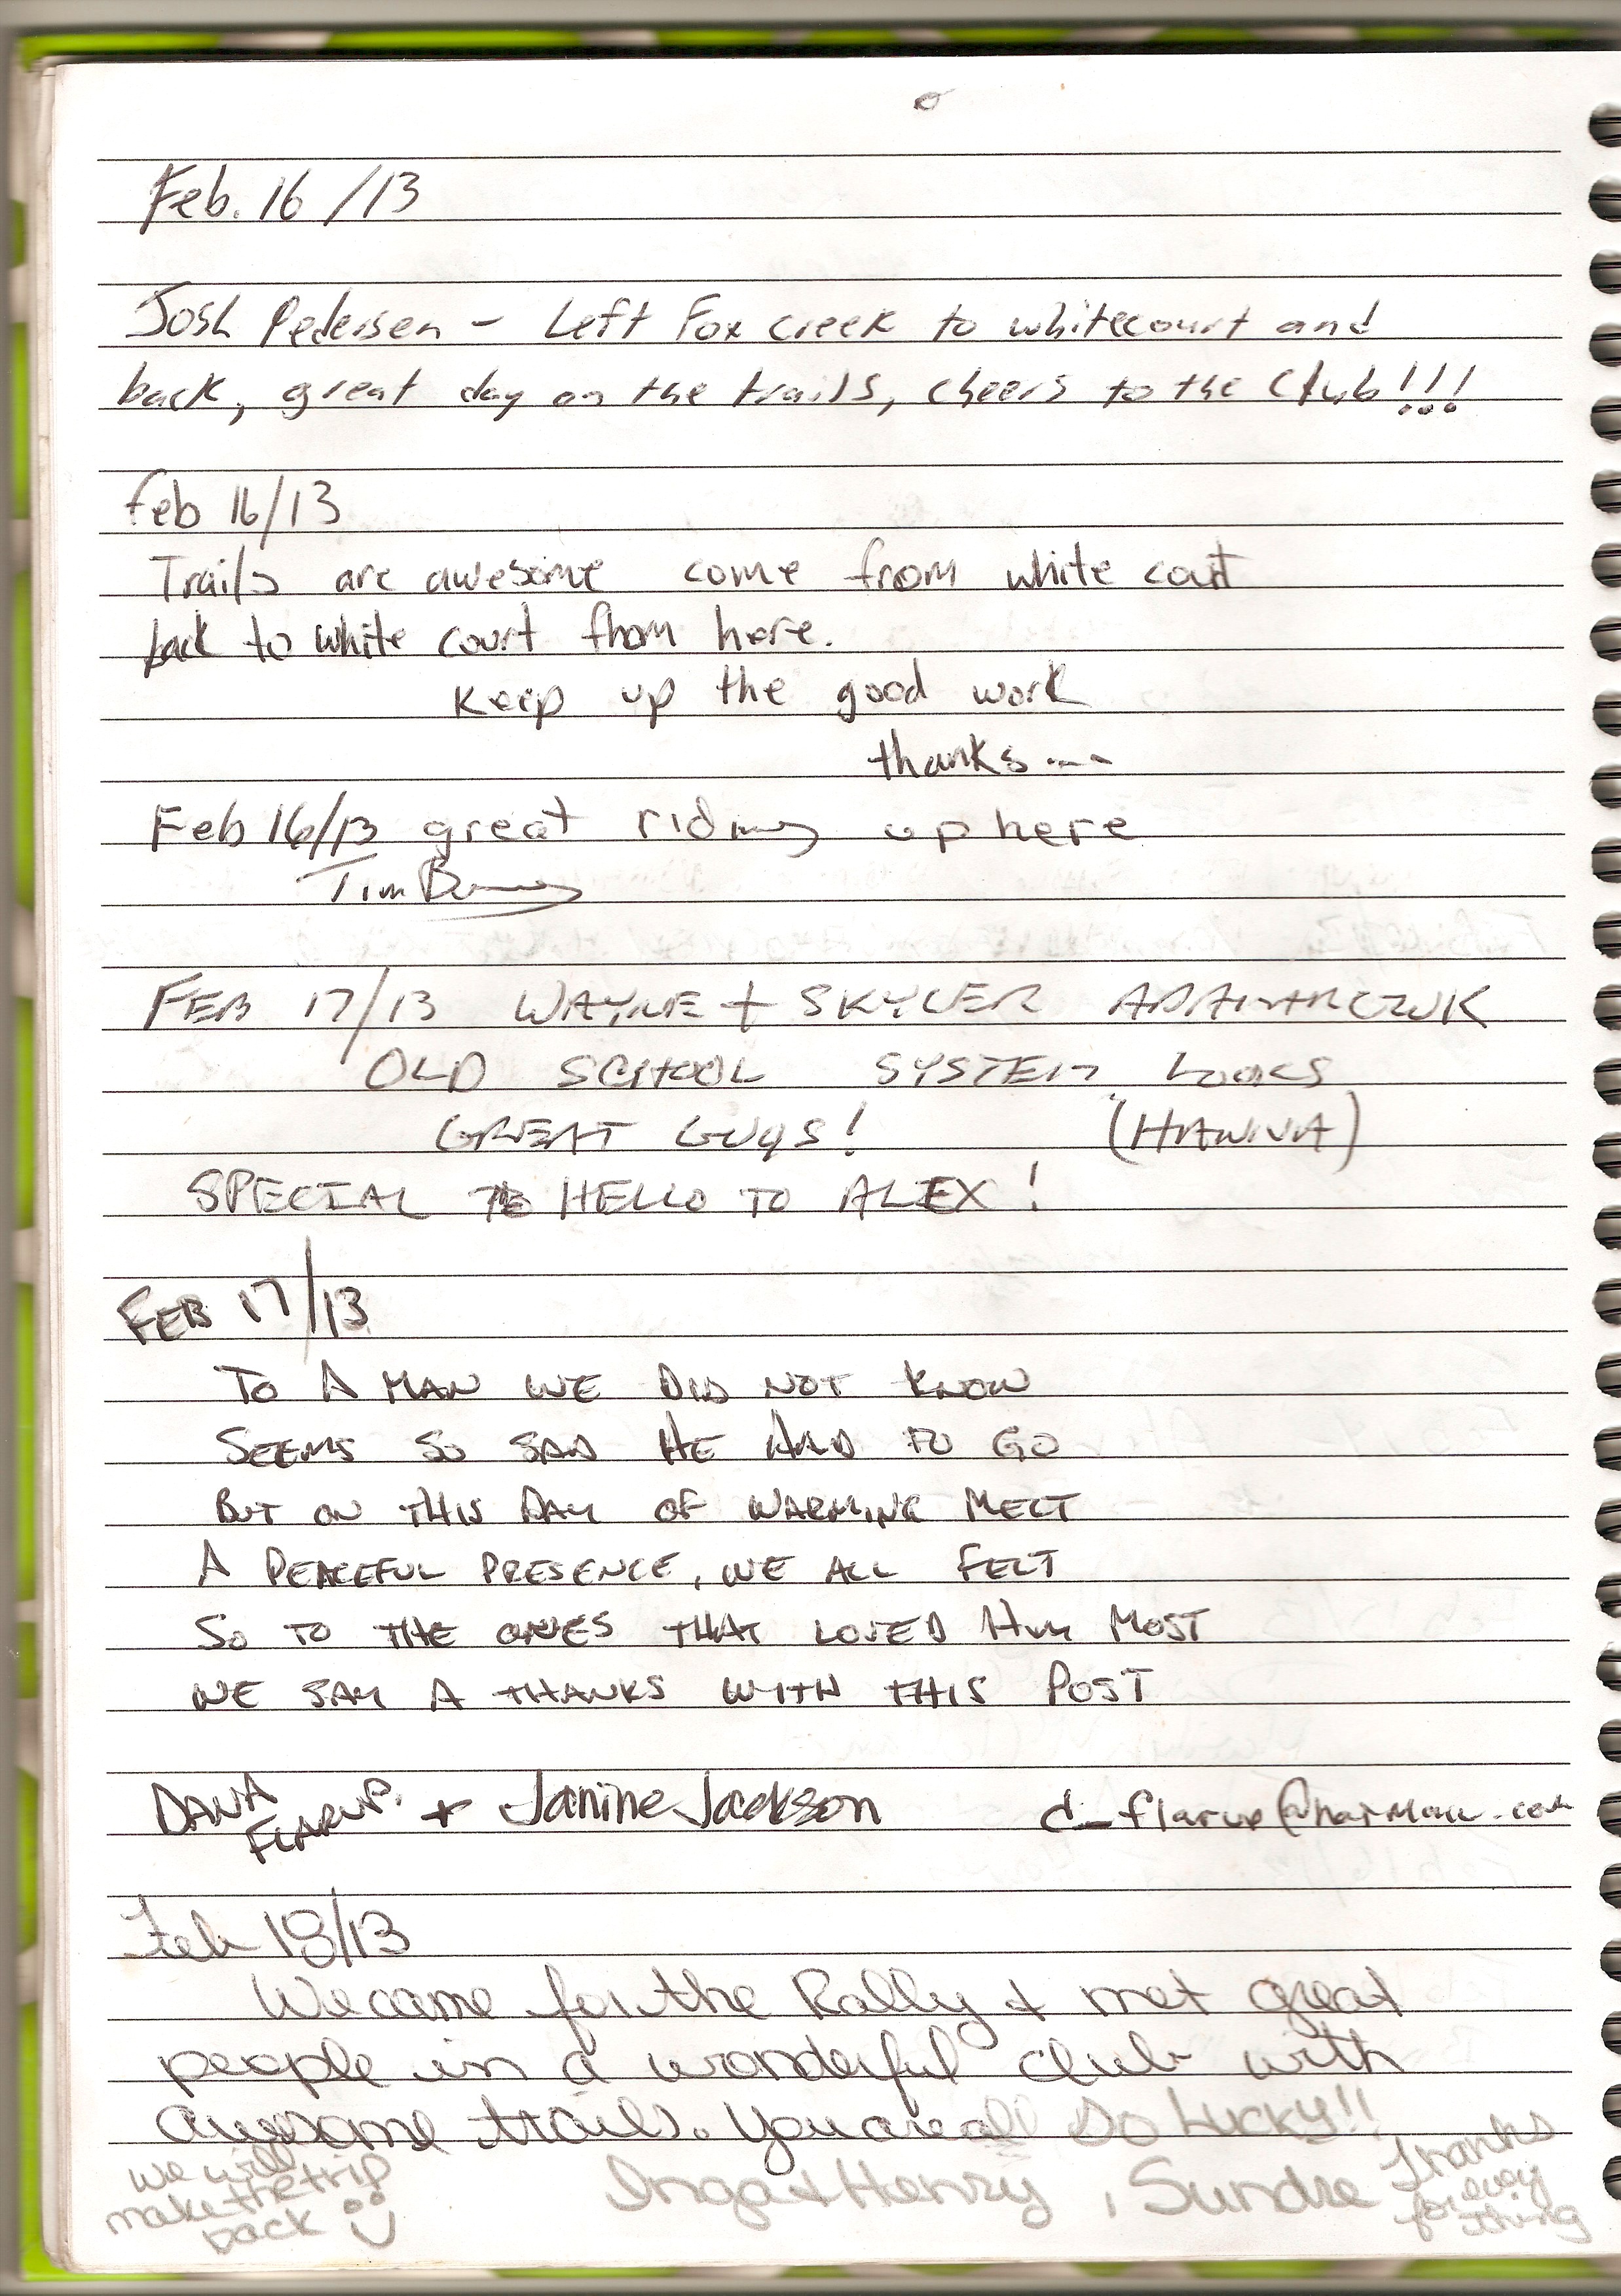 Feb. 16 /13
Josh Pedersen - Left Fox creek to whitecourt and
back, great day on the trails, cheers to the Club!!!
Feb 16/13
Trails are awesome come from white court
back to white court from here.
Keep up the good work
thanks....
Feb 16/13 great riding up here
Tim
FEB 17/13 WAYNE + SKYLER ADAMARCZUK
OLD SCHOOL SYSTEM LOOKS
GREAT GUYS! (HANNA)
SPECIAL HELLO TO ALEX!
FEB 17/13
TO A MAN WE DID NOT KNOW
SEEMS SO SAD HE HAD TO GO
BUT ON THIS DAY OF WARMING MELT
A PEACEFUL PRESENCE, WE ALL FELT
SO TO THE ONES THAT LOVED HIM MOST
WE SAY A THANKS WITH THIS POST
DANA FLARUP. + Janine Jackson d_flarup@hotmail.com
Feb 18/13
We came for the Rally + met great
people in a wonderful club with
awesome trails. You are all So Lucky!!
Inga + Henry, Sundre
Thanks
for every
thing
We will
make the trip
back :)